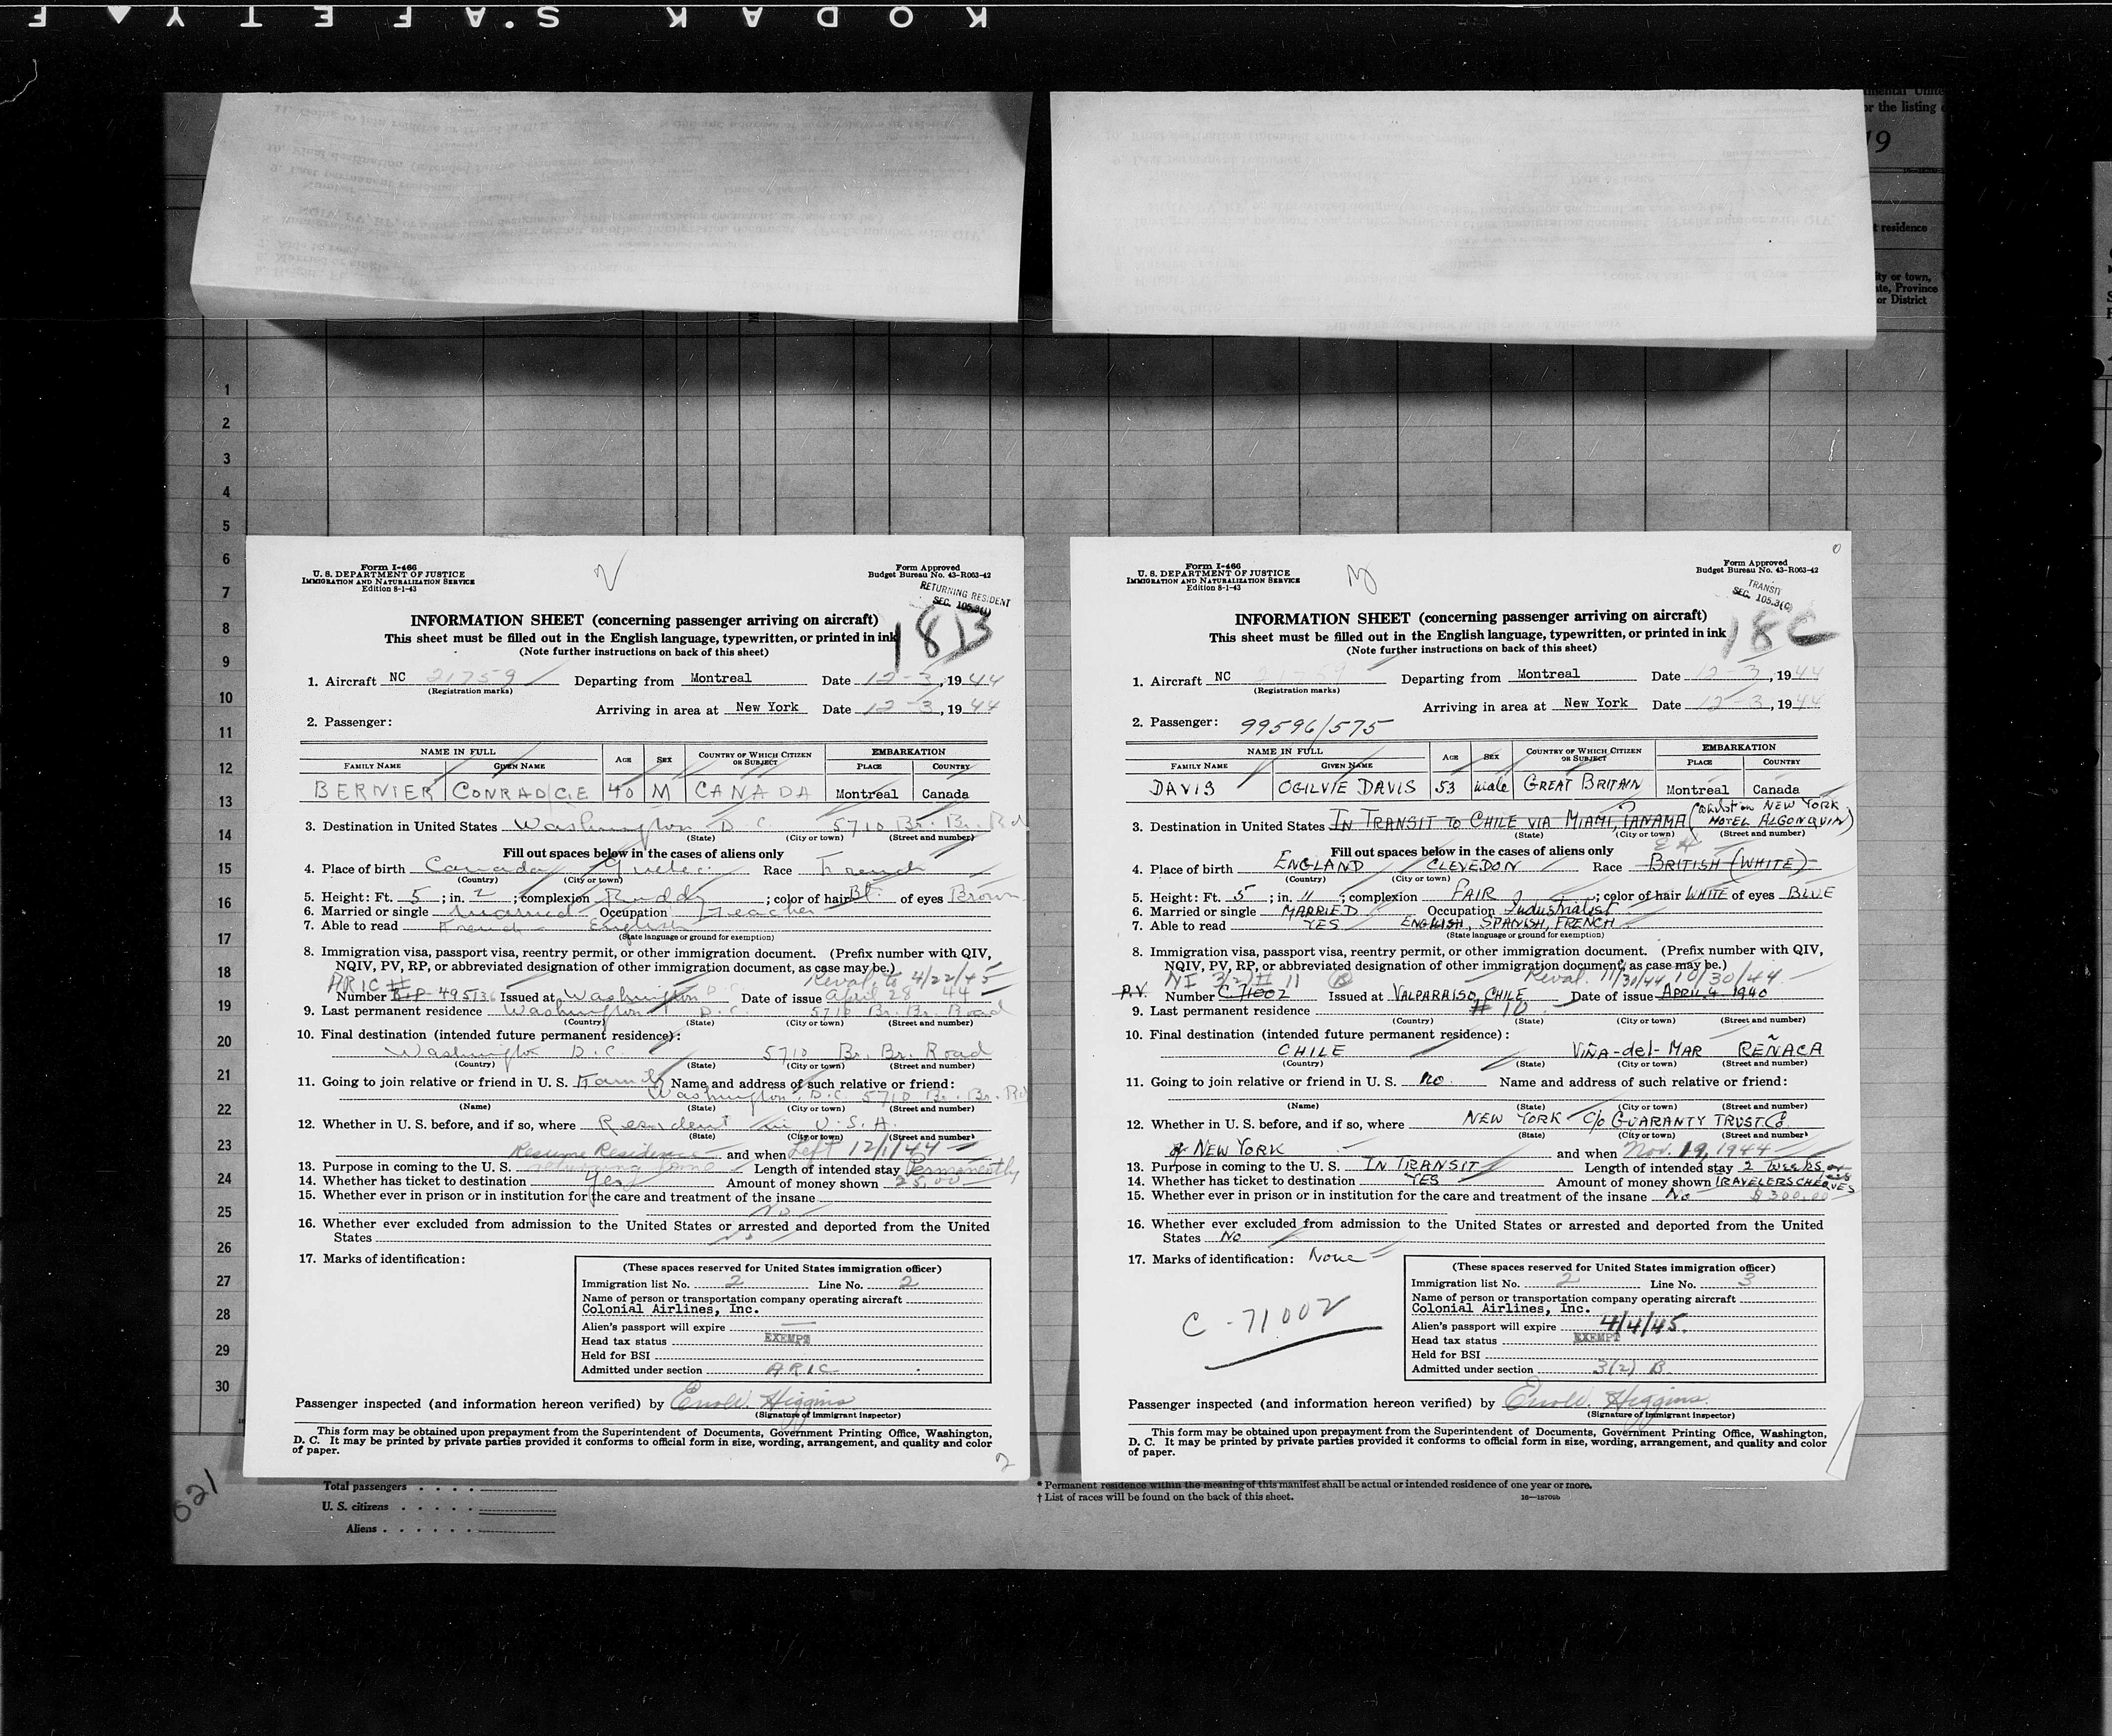 KODAK S'AFETY F
19
residence
or the listing
1
2
3
4
5
6
7
8
9
10
11
12
13
14
15
16
17
18
19
20
21
22
23
24
25
26
27
28
29
30
Form I-466
U. S. DEPARTMENT OF JUSTICE
IMMIGRATION AND NATURALIZATION SERVICE
Edition 8-1-43
Form Approved
Budget Bureau No. 43-R063-42
RETURNING RESIDENT
SEC. 105.3(1)
18B
INFORMATION SHEET (concerning passenger arriving on aircraft)
This sheet must be filled out in the English language, typewritten, or printed in ink
(Note further instructions on back of this sheet)
1. Aircraft NC 21759 Departing from Montreal Date 12-3, 1944
(Registration marks)
Arriving in area at New York Date 12-3, 1944
2. Passenger:
NAME IN FULL AGE SEX COUNTRY OF WHICH CITIZEN OR SUBJECT EMBARKATION
FAMILY NAME GIVEN NAME PLACE COUNTRY
BERNIER CONRAD 40 M CANADA Montreal Canada
3. Destination in United States Washington D C 5710 Br. Br. Rd
(State) (City or town) (Street and number)
Fill out spaces below in the cases of aliens only
4. Place of birth Canada Quebec Race French
(Country) (City or town)
5. Height: Ft. 5 ; in. 2 ; complexion Ruddy ; color of hair Bl. of eyes Brown
6. Married or single married Occupation Teacher
7. Able to read French - English
(State language or ground for exemption)
8. Immigration visa, passport visa, reentry permit, or other immigration document. (Prefix number with QIV,
NQIV, PV, RP, or abbreviated designation of other immigration document, as case may be.)
ARIC # Reval. to 4/22/45
Number 495136 Issued at Washington D.C. Date of issue April 28 44
9. Last permanent residence Washington D.C. 5710 Br. Br. Road
(Country) (State) (City or town) (Street and number)
10. Final destination (intended future permanent residence):
Washington D.C. 5710 Br. Br. Road
(Country) (State) (City or town) (Street and number)
11. Going to join relative or friend in U. S. Family Name and address of such relative or friend:
Washington, D.C. 5710 Br. Br. Rd
(Name) (State) (City or town) (Street and number)
12. Whether in U. S. before, and if so, where Resident in U.S.A.
(State) (City or town) (Street and number)
Resume Residence and when Left 12/1/44
13. Purpose in coming to the U. S. returning home Length of intended stay Permanently
14. Whether has ticket to destination Yes Amount of money shown 25.00
15. Whether ever in prison or in institution for the care and treatment of the insane
No
16. Whether ever excluded from admission to the United States or arrested and deported from the United
States No
17. Marks of identification:
(These spaces reserved for United States immigration officer)
Immigration list No. 2 Line No. 2
Name of person or transportation company operating aircraft
Colonial Airlines, Inc.
Alien's passport will expire —
Head tax status EXEMPT
Held for BSI
Admitted under section ARIC
Passenger inspected (and information hereon verified) by Higgins
(Signature of Immigrant Inspector)
This form may be obtained upon prepayment from the Superintendent of Documents, Government Printing Office, Washington,
D. C. It may be printed by private parties provided it conforms to official form in size, wording, arrangement, and quality and color
of paper.
2
Form I-466
U. S. DEPARTMENT OF JUSTICE
IMMIGRATION AND NATURALIZATION SERVICE
Edition 8-1-43
Form Approved
Budget Bureau No. 43-R063-42
TRANSIT
SEC. 105.3(C)
18C
INFORMATION SHEET (concerning passenger arriving on aircraft)
This sheet must be filled out in the English language, typewritten, or printed in ink
(Note further instructions on back of this sheet)
1. Aircraft NC 21759 Departing from Montreal Date 12-3, 1944
(Registration marks)
Arriving in area at New York Date 12-3, 1944
2. Passenger: 99596/575
NAME IN FULL AGE SEX COUNTRY OF WHICH CITIZEN OR SUBJECT EMBARKATION
FAMILY NAME GIVEN NAME PLACE COUNTRY
DAVIS OGILVIE DAVIS 53 male GREAT BRITAIN Montreal Canada
3. Destination in United States IN TRANSIT TO CHILE VIA MIAMI, PANAMA (Whilst in NEW YORK HOTEL ALGONQUIN)
(State) (City or town) (Street and number)
Fill out spaces below in the cases of aliens only
4. Place of birth ENGLAND CLEVEDON Race BRITISH (WHITE)
(Country) (City or town)
5. Height: Ft. 5 ; in. 11 ; complexion FAIR ; color of hair WHITE of eyes BLUE
6. Married or single MARRIED Occupation Industrialist
7. Able to read YES ENGLISH, SPANISH, FRENCH
(State language or ground for exemption)
8. Immigration visa, passport visa, reentry permit, or other immigration document. (Prefix number with QIV,
NQIV, PV, RP, or abbreviated designation of other immigration document, as case may be.)
Reval. 11/30/44 10/30/44
P.V. Number C 71002 Issued at VALPARAISO, CHILE Date of issue APRIL 4 1940
9. Last permanent residence # 10
(Country) (State) (City or town) (Street and number)
10. Final destination (intended future permanent residence):
CHILE VIÑA-del-MAR REÑACA
(Country) (State) (City or town) (Street and number)
11. Going to join relative or friend in U. S. no. Name and address of such relative or friend:
(Name) (State) (City or town) (Street and number)
12. Whether in U. S. before, and if so, where NEW YORK C/o GUARANTY TRUST Co
(State) (City or town) (Street and number)
of NEW YORK and when Nov. 19, 1944
13. Purpose in coming to the U. S. IN TRANSIT Length of intended stay 2 weeks
14. Whether has ticket to destination YES Amount of money shown TRAVELERS CHEQUES
15. Whether ever in prison or in institution for the care and treatment of the insane No $300.00
16. Whether ever excluded from admission to the United States or arrested and deported from the United
States No
17. Marks of identification: None
C-71002
(These spaces reserved for United States immigration officer)
Immigration list No. 2 Line No. 3
Name of person or transportation company operating aircraft
Colonial Airlines, Inc.
Alien's passport will expire 4/4/45.
Head tax status EXEMPT
Held for BSI
Admitted under section 3(2) B
Passenger inspected (and information hereon verified) by Higgins
(Signature of Immigrant Inspector)
This form may be obtained upon prepayment from the Superintendent of Documents, Government Printing Office, Washington,
D. C. It may be printed by private parties provided it conforms to official form in size, wording, arrangement, and quality and color
of paper.
621
Total passengers
U. S. citizens
Aliens
* Permanent residence within the meaning of this manifest shall be actual or intended residence of one year or more.
† List of races will be found on the back of this sheet.